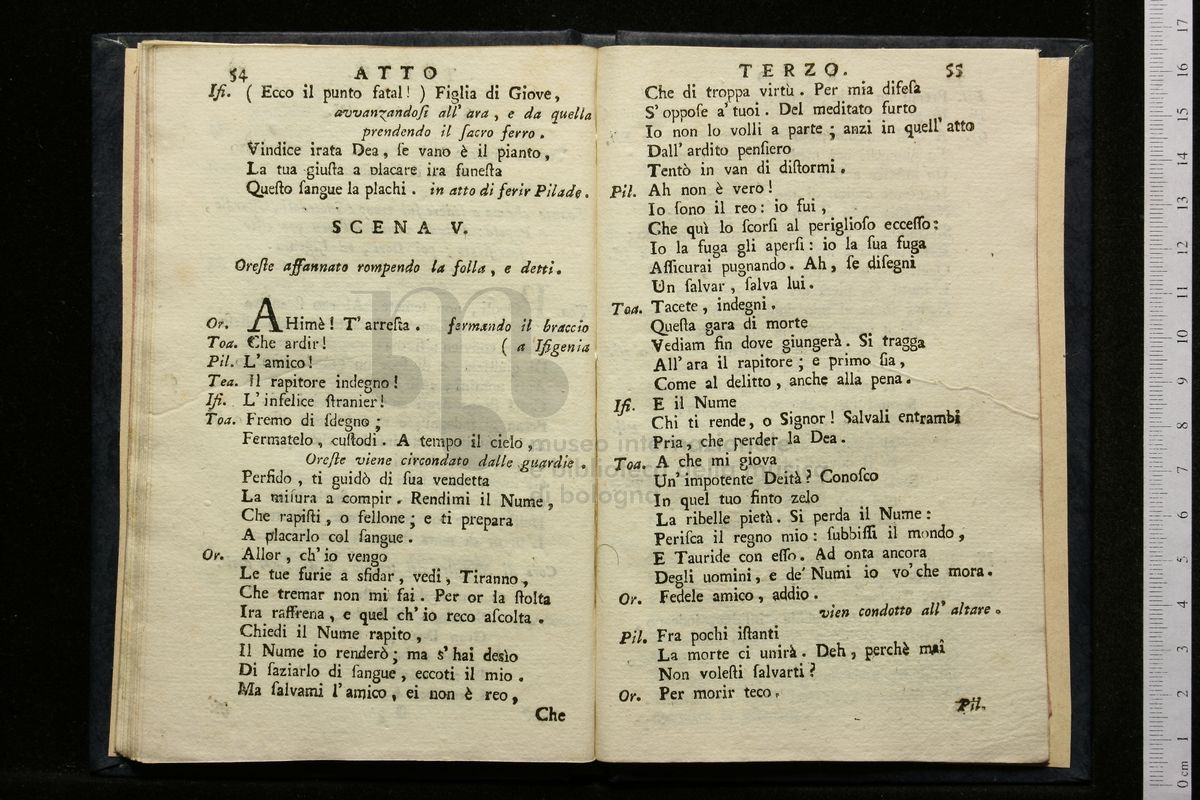 54 ATTO
Ifi. ( Ecco il punto fatal! ) Figlia di Giove,
avvanzandoſi all' ara, e da quella
prendendo il ſacro ferro.
Vindice irata Dea, ſe vano è il pianto,
La tua giuſta a placare ira funeſta
Queſto ſangue la plachi. in atto di ferir Pilade.
SCENA V.
Oreſte affannato rompendo la folla, e detti.
Or. AHimè! T' arreſta. fermando il braccio
Toa. Che ardir! ( a Ifigenia
Pil. L' amico!
Tea. Il rapitore indegno!
Ifi. L' infelice ſtranier!
Toa. Fremo di ſdegno;
Fermatelo, cuſtodi. A tempo il cielo,
Oreſte viene circondato dalle guardie.
Perfido, ti guidò di ſua vendetta
La miſura a compir. Rendimi il Nume,
Che rapiſti, o fellone; e ti prepara
A placarlo col ſangue.
Or. Allor, ch' io vengo
Le tue furie a sfidar, vedi, Tiranno,
Che tremar non mi fai. Per or la ſtolta
Ira raffrena, e quel ch' io reco aſcolta.
Chiedi il Nume rapito,
Il Nume io renderò; ma s' hai desìo
Di ſaziarlo di ſangue, eccoti il mio.
Ma ſalvami l' amico, ei non è reo,
Che
TERZO. 55
Che di troppa virtù. Per mia difeſa
S' oppoſe a' tuoi. Del meditato furto
Io non lo volli a parte; anzi in quell' atto
Dall' ardito penſiero
Tentò in van di diſtormi.
Pil. Ah non è vero!
Io ſono il reo: io fui,
Che quì lo ſcorſi al periglioſo ecceſſo:
Io la fuga gli aperſi: io la ſua fuga
Aſſicurai pugnando. Ah, ſe diſegni
Un ſalvar, ſalva lui.
Toa. Tacete, indegni.
Queſta gara di morte
Vediam fin dove giungerà. Si tragga
All' ara il rapitore; e primo ſia,
Come al delitto, anche alla pena.
Ifi. E il Nume
Chi ti rende, o Signor! Salvali entrambi
Pria, che perder la Dea.
Toa. A che mi giova
Un' impotente Deità? Conoſco
In quel tuo finto zelo
La ribelle pietà. Si perda il Nume:
Periſca il regno mio: ſubbiſſi il mondo,
E Tauride con eſſo. Ad onta ancora
Degli uomini, e de' Numi io vo' che mora.
Or. Fedele amico, addio.
vien condotto all' altare.
Pil. Fra pochi iſtanti
La morte ci unirà. Deh, perchè mai
Non voleſti ſalvarti?
Or. Per morir teco.
Pil.
museo internazionale
e biblioteca della musica
di bologna
0 cm 1 2 3 4 5 6 7 8 9 10 11 12 13 14 15 16 17